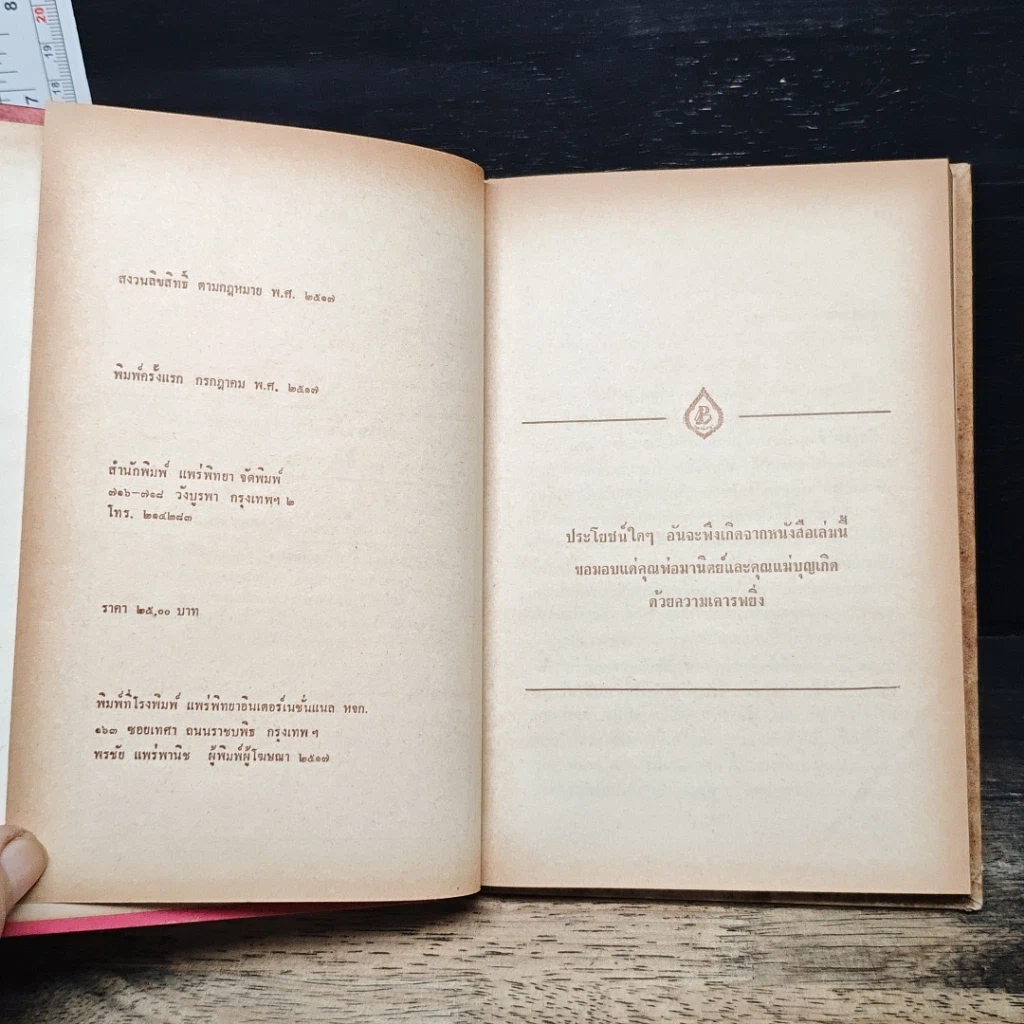 8
7
20
19
18
สงวนลิขสิทธิ์ ตามกฎหมาย พ.ศ. ๒๕๑๗
พิมพ์ครั้งแรก กรกฎาคม พ.ศ. ๒๕๑๗
สำนักพิมพ์ แพร่พิทยา จัดพิมพ์
๗๑๖–๗๑๘ วังบูรพา กรุงเทพฯ ๒
โทร. ๒๑๔๒๘๓
ราคา ๒๕,๐๐ บาท
พิมพ์ที่โรงพิมพ์ แพร่พิทยาอินเตอร์เนชั่นแนล หจก.
๑๖๓ ซอยเทศา ถนนราชบพิธ กรุงเทพ ฯ
พรชัย แพร่พานิช ผู้พิมพ์ผู้โฆษณา ๒๕๑๗
ประโยชน์ใดๆ อันจะพึงเกิดจากหนังสือเล่มนี้
ขอมอบแด่คุณพ่อมานิตย์และคุณแม่บุญเกิด
ด้วยความเคารพยิ่ง